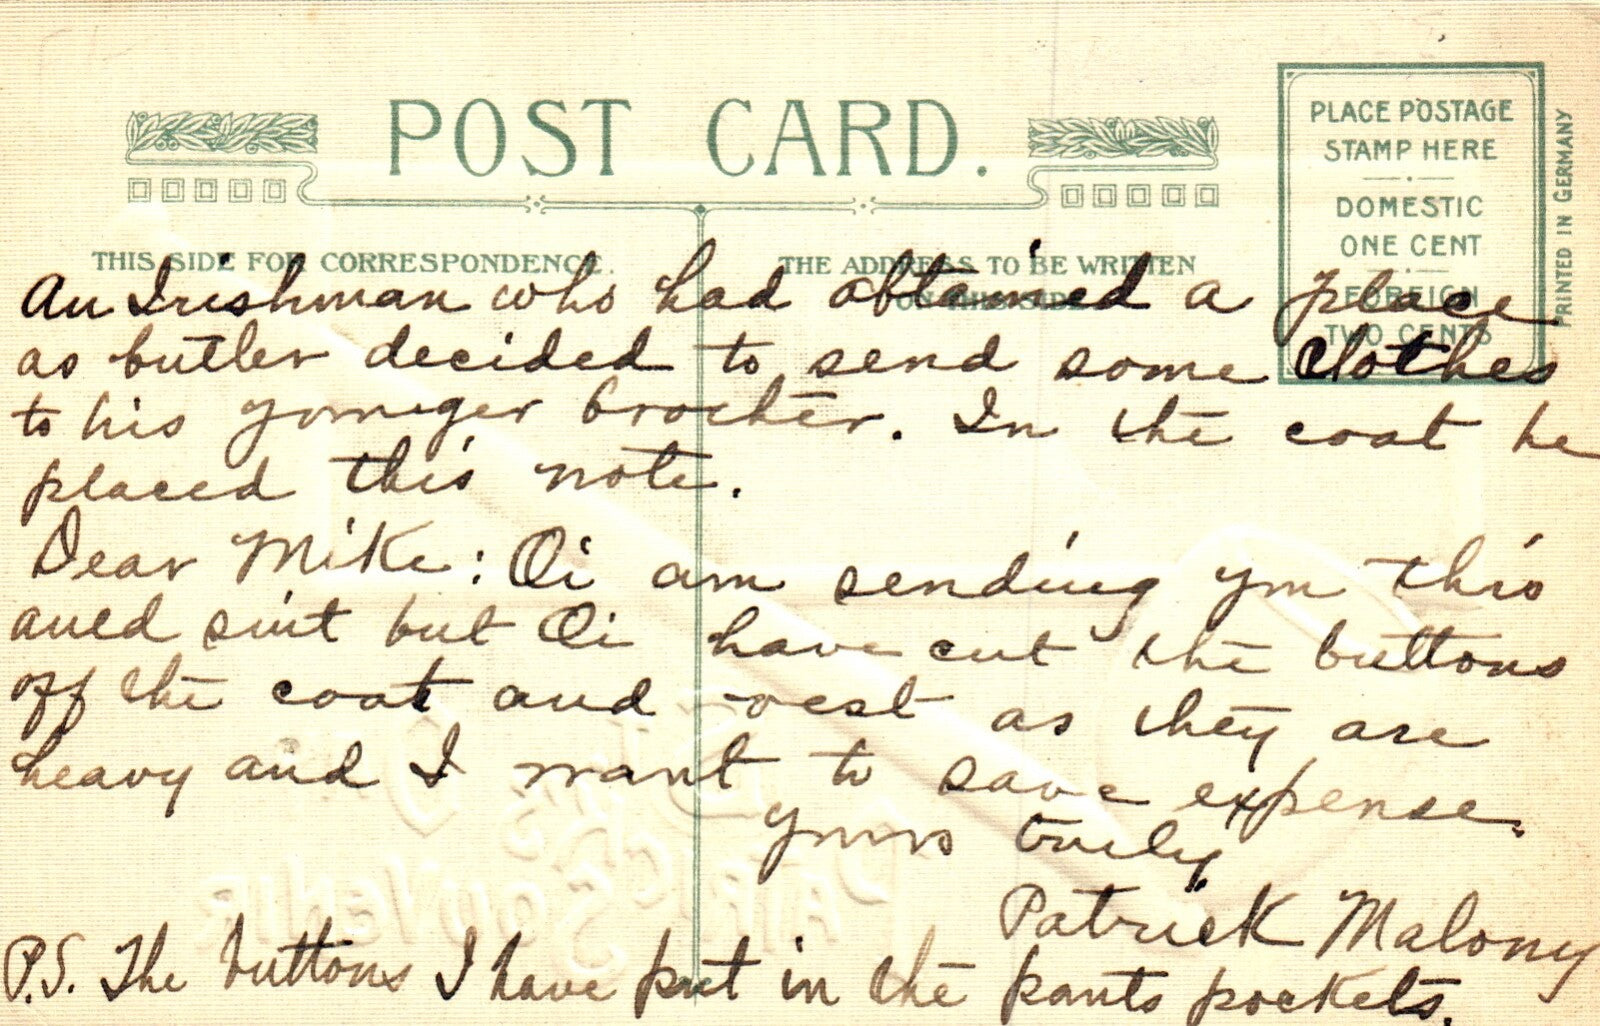 POST CARD.
PLACE POSTAGE
STAMP HERE
DOMESTIC
ONE CENT
FOREIGN
TWO CENTS
PRINTED IN GERMANY
THIS SIDE FOR CORRESPONDENCE.
THE ADDRESS TO BE WRITTEN
ON THIS SIDE
An Irishman who had obtained a place
as butler decided to send some clothes
to his younger brother. In the coat he
placed this note.
Dear Mike: Oi am sending you this
auld suit but Oi have cut the buttons
off the coat and vest as they are
heavy and I want to save expense.
Yours truly
Patrick Malony
P.S. The buttons I have put in the pants pockets.
ST.
PATRICK'S
SOUVENIR